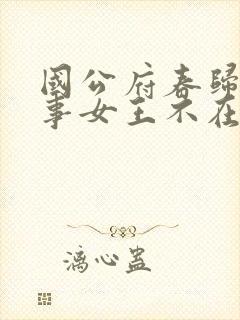 國公府春歸
事女王不在
漓心蠱